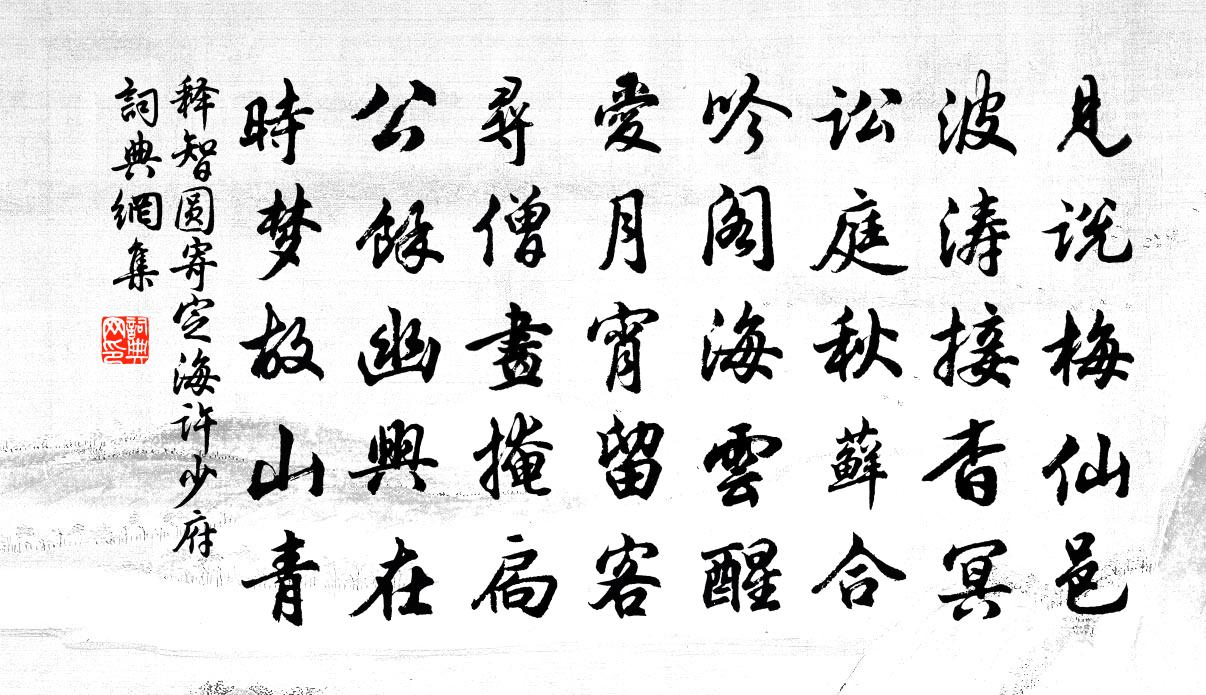 見説梅仙邑
波涛接杳冥
訟庭秋蘚合
吟阁海雲醒
愛月宵留客
尋僧晝掩扃
公餘幽興在
時梦故山青
释智圆寄定海许少府
詞典網集
詞典网印